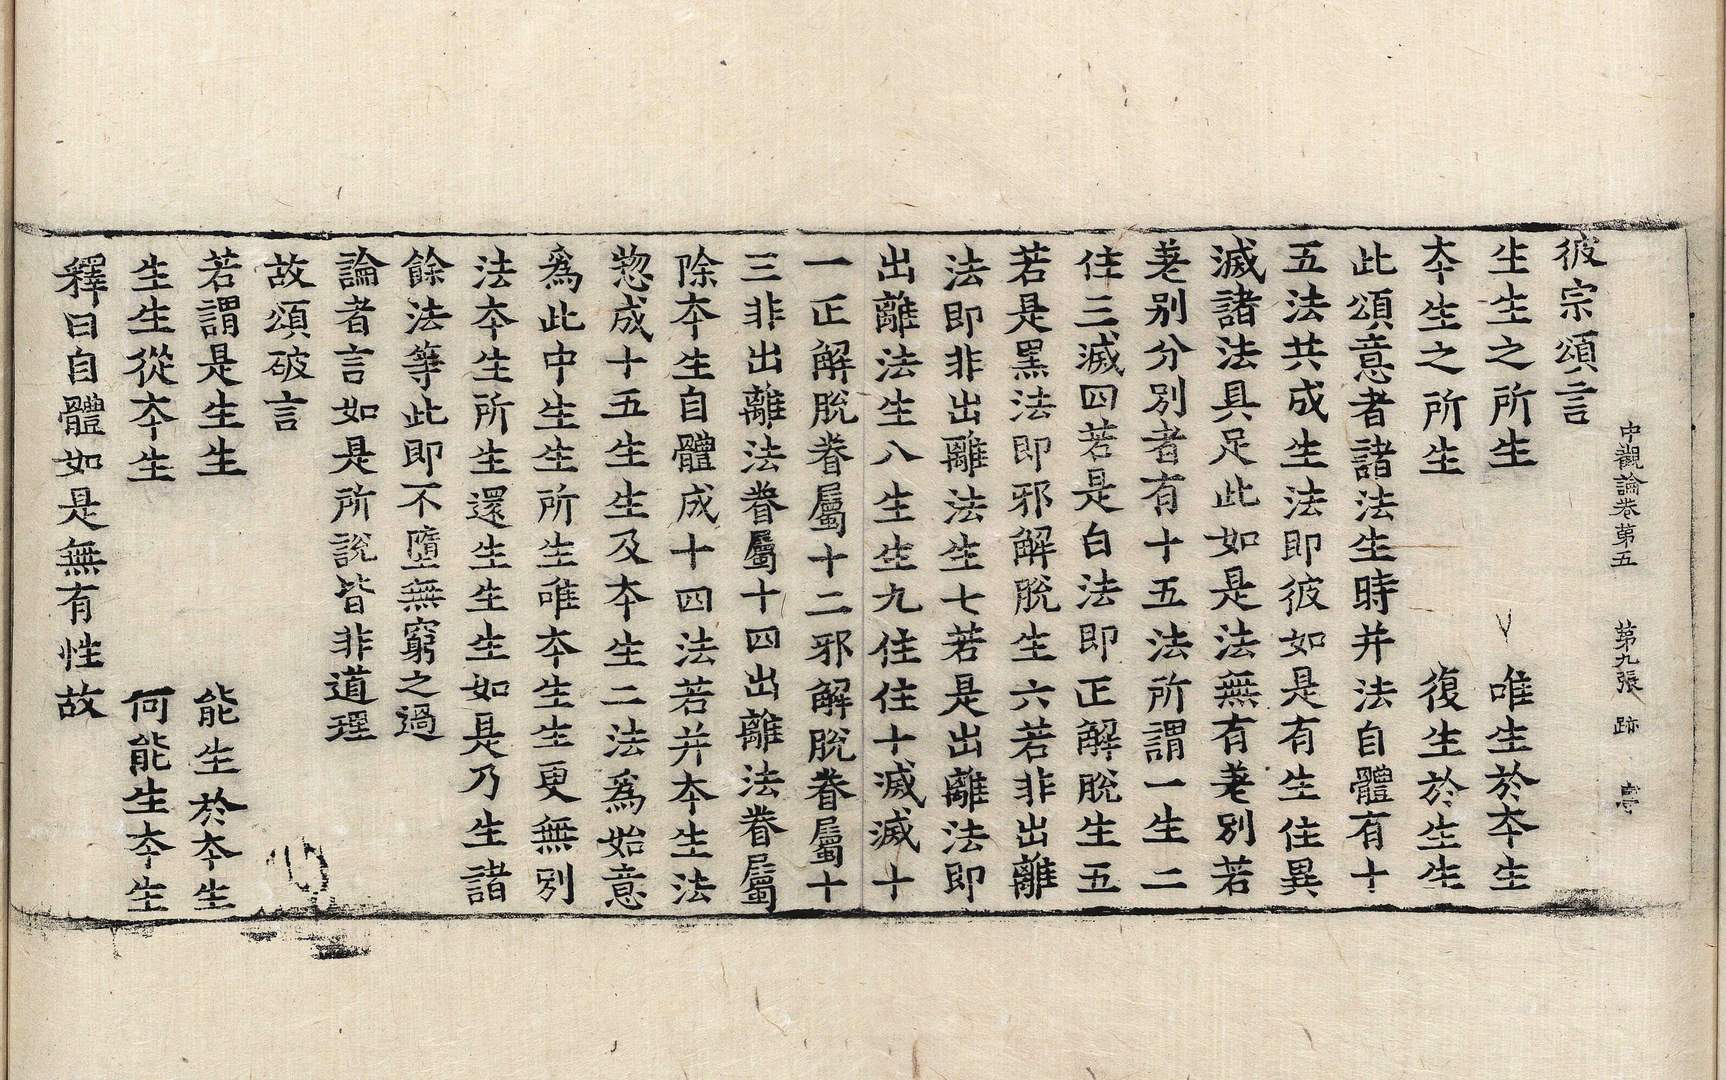 中觀論卷第五 第九張 跡
彼宗頌言
生生之所生 唯生於夲生
夲生之所生 復生於生生
此頌意者諸法生時并法自體有十
五法共成生法即彼如是有生住異
滅諸法具足此如是法無有差別若
差别分別者有十五法所謂一生二
住三滅四若是白法即正解脫生五
若是黑法即邪解脫生六若非出離
法即非出離法生七若是出離法即
出離法生八生生九住住十滅滅十
一正解脫眷屬十二邪解脫眷屬十
三非出離法眷屬十四出離法眷屬
除夲生自體成十四法若并夲生法
惣成十五生生及夲生二法爲始意
爲此中生生所生唯夲生生更無別
法夲生所生還生生生如是乃生諸
餘法等此即不墮無窮之過
論者言如是所說皆非道理
故頌破言
若謂是生生 能生於夲生
生生從夲生 何能生夲生
釋曰自體如是無有性故